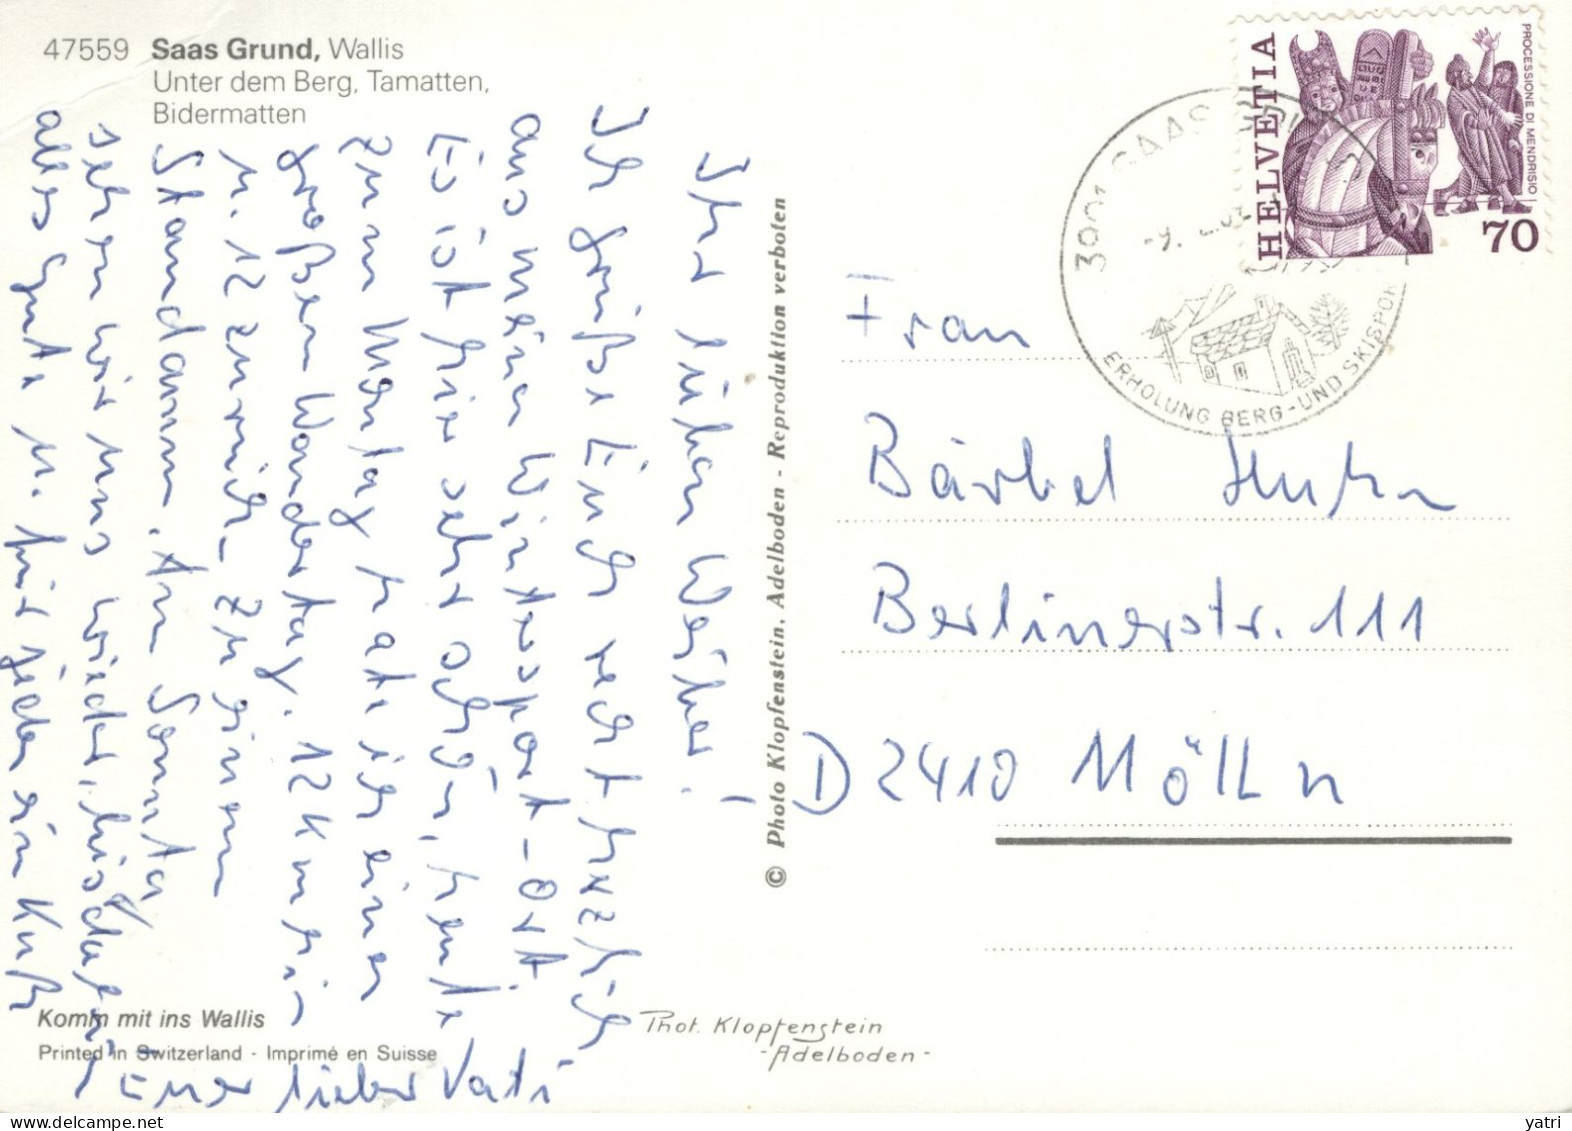 47559 Saas Grund, Wallis
Unter dem Berg, Tamatten,
Bidermatten
Ihr lieben Weiber!
Ich grüße Euch recht herzlich
aus meinem Wintersport-Ort.
Es ist hier sehr schön, heute
zum Montag hatte ich einen
großen Wandertag. 12 km hin
u. 12 zurück zu einem
Staudamm. Am Sonntag
sehen wir uns wieder, bis dahin
alles Gute u. für jeden ein Kuß
Euer lieber Vati
Komm mit ins Wallis
Printed in Switzerland - Imprimé en Suisse
© Photo Klopfenstein, Adelboden - Reproduktion verboten
Phot. Klopfenstein
-Adelboden-
HELVETIA
PROCESSIONE DI MENDRISIO
70
SAAS
ERHOLUNG BERG-UND SKISPOR
Frau
Bärbel
Berlinerstr. 111
D 2410 Mölln
yatri